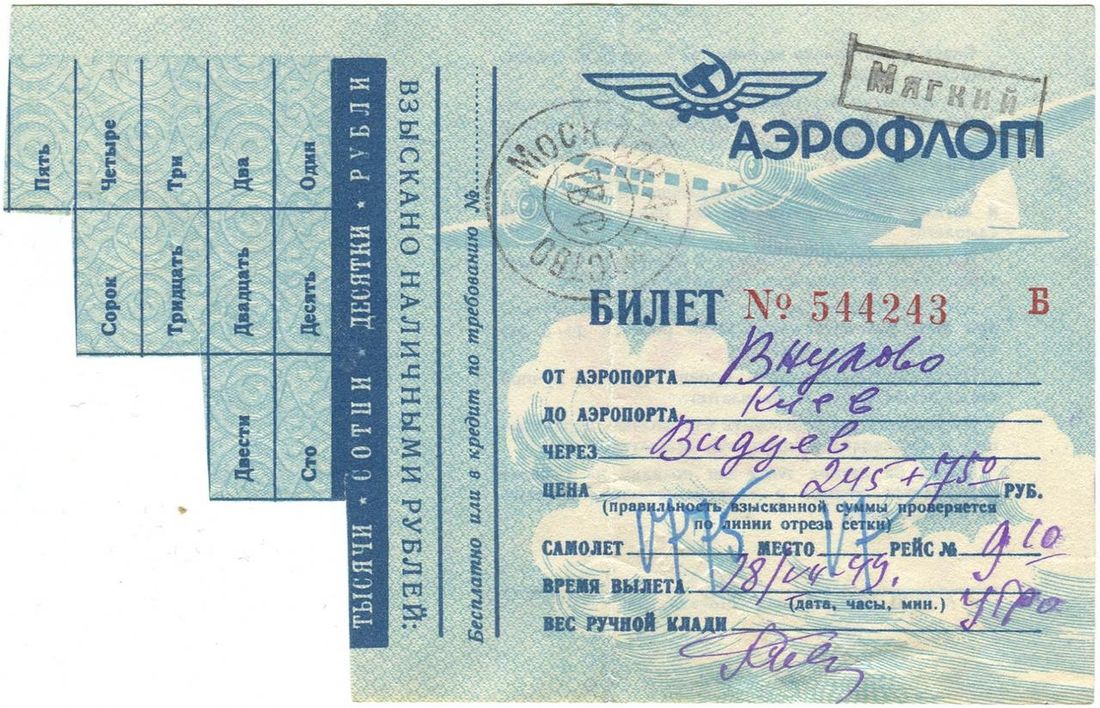 Мягкий
АЭРОФЛОТ
БИЛЕТ № 544243 Б
ОТ АЭРОПОРТА Внуково
ДО АЭРОПОРТА Киев
ЧЕРЕЗ
ЦЕНА 245 + 7 50 РУБ.
(правильность взысканной суммы проверяется
по линии отреза сетки)
САМОЛЕТ МЕСТО РЕЙС №
ВРЕМЯ ВЫЛЕТА 18/VII-49.
(дата, часы, мин.) утро
ВЕС РУЧНОЙ КЛАДИ
Бесплатно или в кредит по требованию №
ВЗЫСКАНО НАЛИЧНЫМИ РУБЛЕЙ:
ТЫСЯЧИ ★ СОТНИ ★ ДЕСЯТКИ ★ РУБЛИ
Пять
Четыре
Три
Два
Один
Сорок
Тридцать
Двадцать
Десять
Двести
Сто